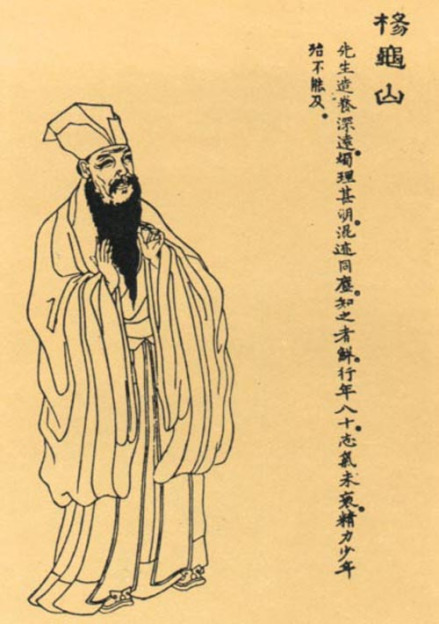 楊龜山
先生造養深遠燭理甚明混迹同塵知之者鮮行年八十志氣未衰精力少年
殆不能及